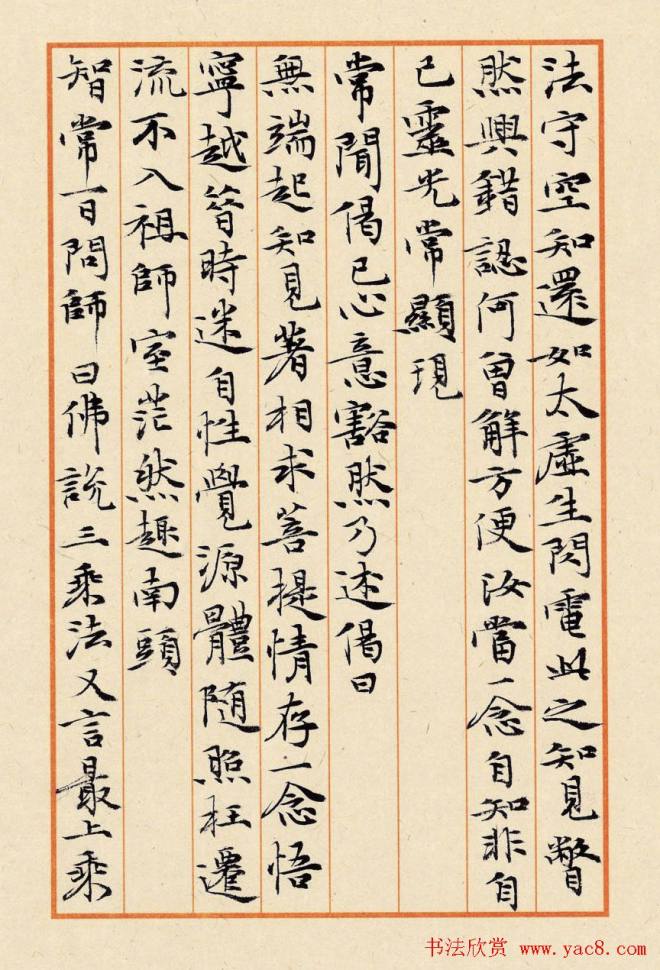 法守空知還如太虛生閃電此之知見瞥
然興錯認何曾解方便汝當一念自知非自
已靈光常顯現
常聞偈已心意豁然乃述偈曰
無端起知見著相求菩提情存一念悟
寧越昔時迷自性覺源體隨照枉遷
流不入祖師室茫然趣南頭
智常一日問師曰佛說三乘法又言最上乘
书法欣赏 www.yac8.com